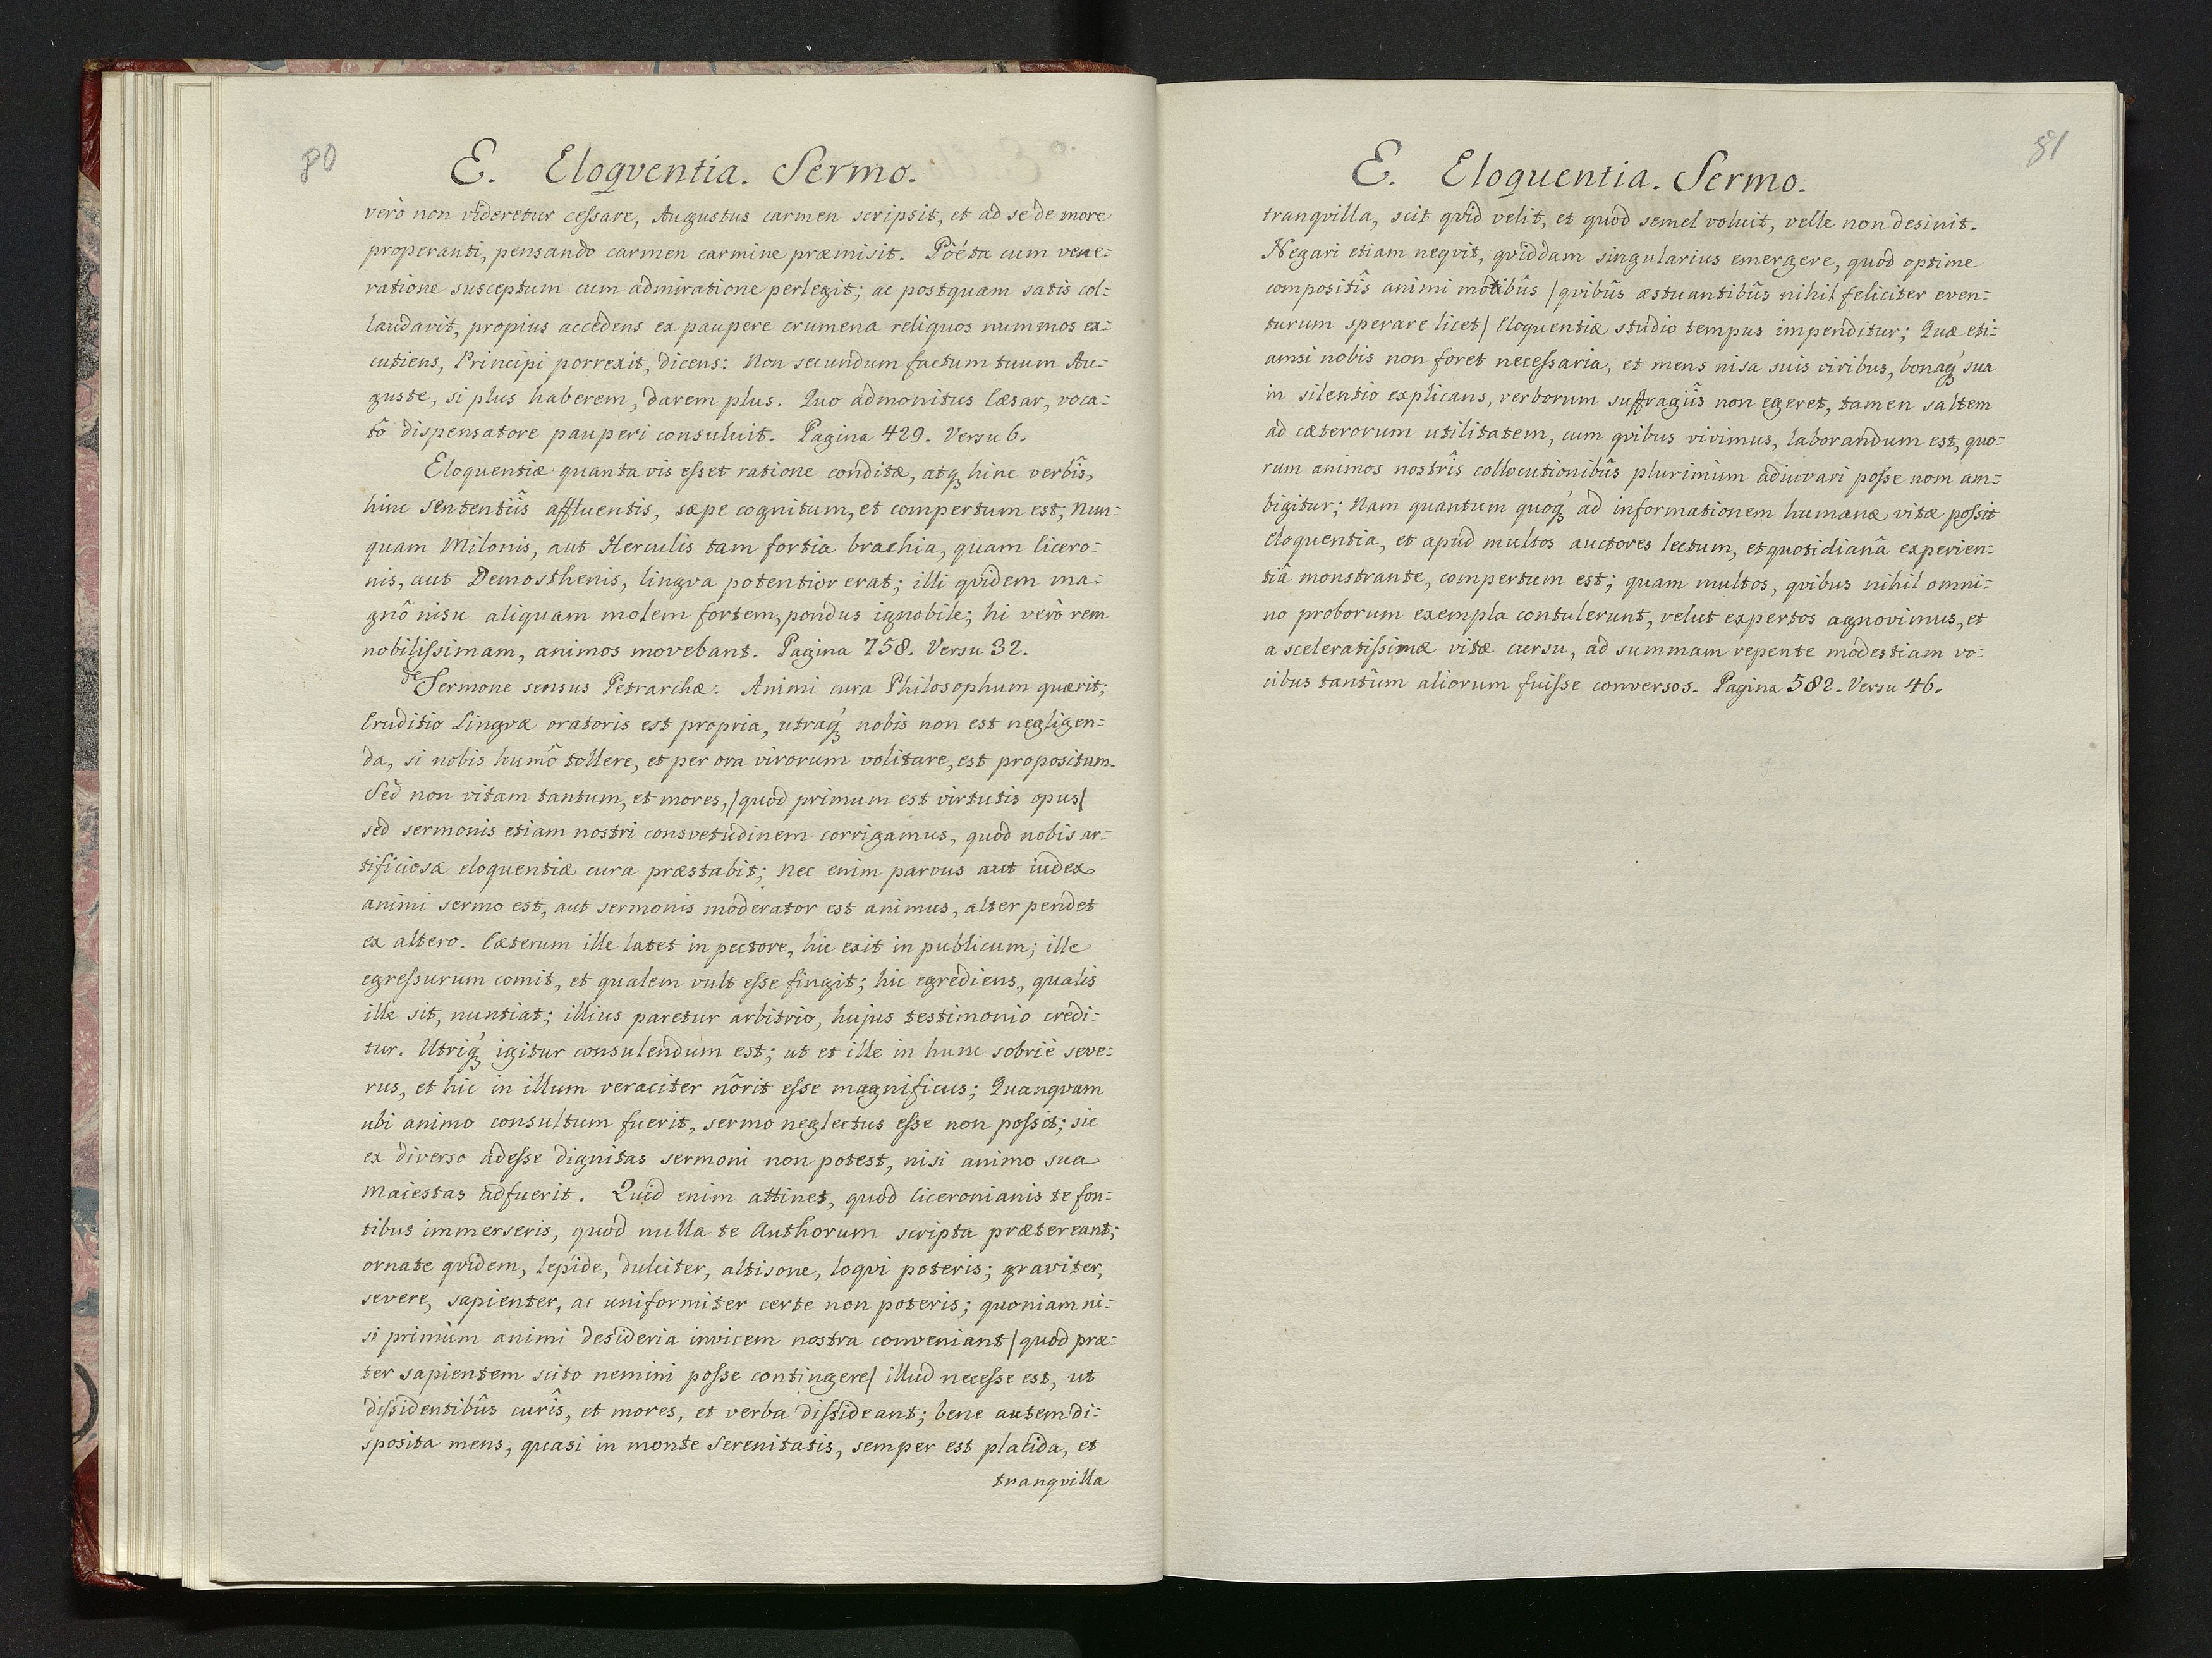 80
E. Eloqventia. Sermo.
verò non videretur ceſsare, Augustus carmen scripsit, et ad se de more
properanti, pensando carmen carmine præmisit. Pöéta cum vene=
ratione susceptum cum admiratione perlegit; ac postquam satis col=
laudavit, propius accedens ex paupere crumena reliquos nummos ex=
cutiens, Principi porrexit, dicens: Non secundum factum tuum Au=
guste, si plus haberem, darem plus. Quo admonitus Cæsar, voca=
tô dispensatore pauperi consuluit. Pagina 429. Versu 6.
Eloquentiæ quanta vis eſset ratione conditæ, atq; hinc verbîs,
hinc sententiîs affluentis, sæpe cognitum, et compertum est; Nun=
quam Milonis, aut Herculis tam fortia brachia, quam Cicero=
nis, aut Demosthenis, lingva potentior erat; illi qvidem ma=
gnô nisu aliquam molem fortem, pondus ignobile; hi verò rem
nobiliſsimam, animos movebant. Pagina 758. Versu 32.
De Sermone sensus Petrarchæ: Animi cura Philosophum quærit;
Eruditio Lingvæ oratoris est propria, utraq; nobis non est negligen=
da, si nobis humô tollere, et per ora virorum volitare, est propositum.
Sed non vitam tantum, et mores, /quod primum est virtutis opus/
sed sermonis etiam nostri consvetudinem corrigamus, quod nobis ar=
tificiosæ eloquentiæ cura præstabit; Nec enim parvus aut iudex
animi sermo est, aut sermonis moderator est animus, alter pendet
ex altero. Cæterum ille latet in pectore, hic exit in publicum; ille
egreſsurum comit, et qualem vult eſse fingit; hic egrediens, qualis
ille sit, nuntiat; illius paretur arbitrio, hujus testimonio credi=
tur. Utriq; igitur consulendum est; ut et ille in hunc sobriè seve=
rus, et hic in illum veraciter nôrit eſse magnificus; Quanqvam
ubi animo consultum fuerit, sermo neglectus eſse non poſsit; sic
ex diverso adeſse dignitas sermoni non potest, nisi animo sua
maiestas adfuerit. Quid enim attinet, quod Ciceronianis te fon=
tibus immerseris, quod nulla te Authorum scripta prætereant;
ornate qvidem, lepide, dulciter, altisone, loqvi poteris; graviter,
severe, sapienter, ac uniformiter certe non poteris; quoniam ni=
si primùm animi desideria invicem nostra conveniant /quod præ=
ter sapientem scito nemini poſse contingere/ illud neceſse est, ut
diſsidentibûs curîs, et mores, et verba diſsideant; bene autem di=
sposita mens, quasi in monte serenitatis, semper est placida, et
tranqvilla
81
E. Eloquentia. Sermo.
tranqvilla, scit qvid velit, et quod semel voluit, velle non desinit.
Negari etiam neqvit, qviddam singularius emergere, quod optime
compositîs animi motibûs /qvibûs æstuantibûs nihil feliciter even=
turum sperare licet/ Eloquentiæ studio tempus impenditur; Quæ eti=
amsi nobis non foret neceſsaria, et mens nisa suis viribus, bonaq; sua
in silentio explicans, verborum suffragiîs non egeret, tamen saltem
ad cæterorum utilitatem, cum qvibus vivimus, laborandum est, quo=
rum animos nostrîs collocutionibûs plurimùm adiuvari poſse nom am=
bigitur; Nam quantum quoq; ad informationem humanæ vitæ poſsit
eloquentia, et apud multos auctores lectum, et quotidianâ experien=
tiâ monstrante, compertum est; quam multos, qvibus nihil omni=
no proborum exempla contulerunt, velut expertos agnovimus, et
a sceleratiſsimæ vitæ cursu, ad summam repente modestiam vo=
cibus tantùm aliorum fuiſse conversos. Pagina 582. Versu 46.